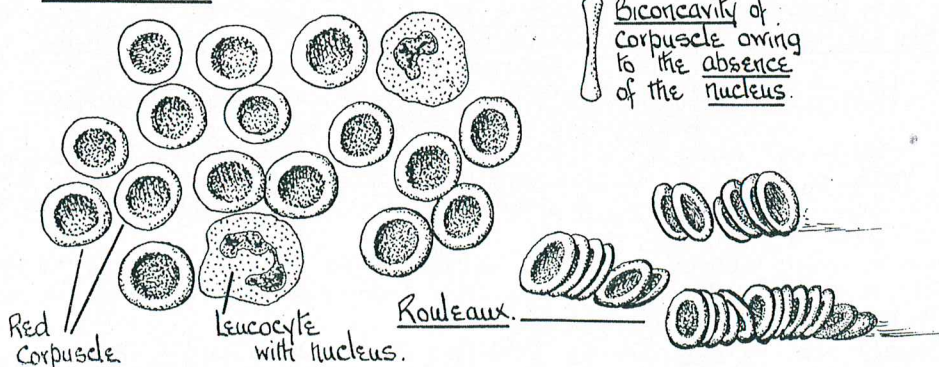 Biconcavity of
corpuscle owing
to the absence
of the nucleus.
Rouleaux.
Red
Corpuscle
Leucocyte
with nucleus.